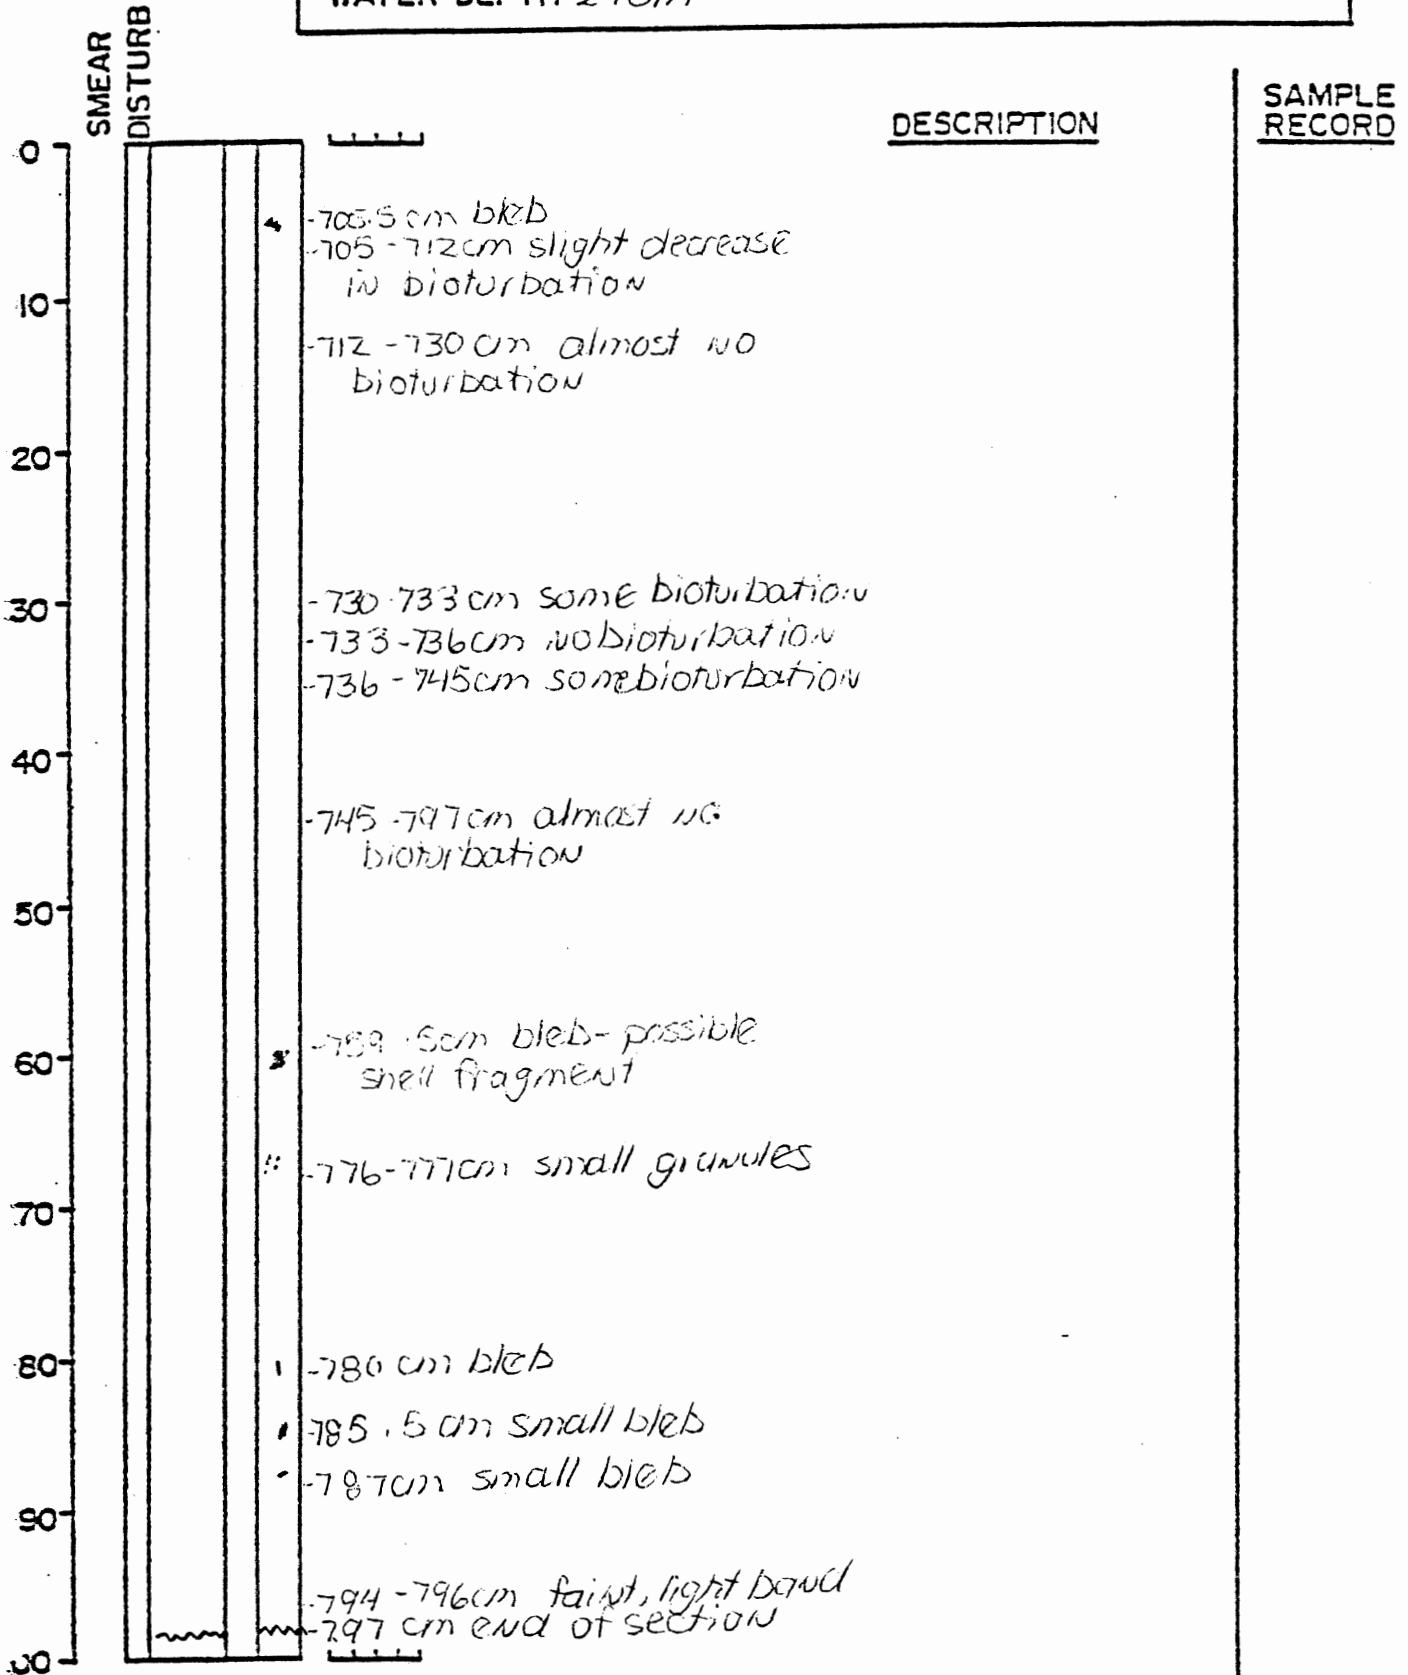 SMEAR
DISTURB
DESCRIPTION
SAMPLE
RECORD
0
-705.5 cm bleb
-705-712cm slight decrease
in bioturbation
10
-712-730 cm almost no
bioturbation
20
30
-730-733 cm some bioturbation
-733-736cm no bioturbation
-736-745cm some bioturbation
40
-745-797cm almost no
bioturbation
50
-759.5cm bleb- possible
shell fragment
60
-776-777cm small granules
70
80
-780 cm bleb
-785.5 cm small bleb
-787cm small bleb
90
-794-796cm faint, light band
-797 cm end of section